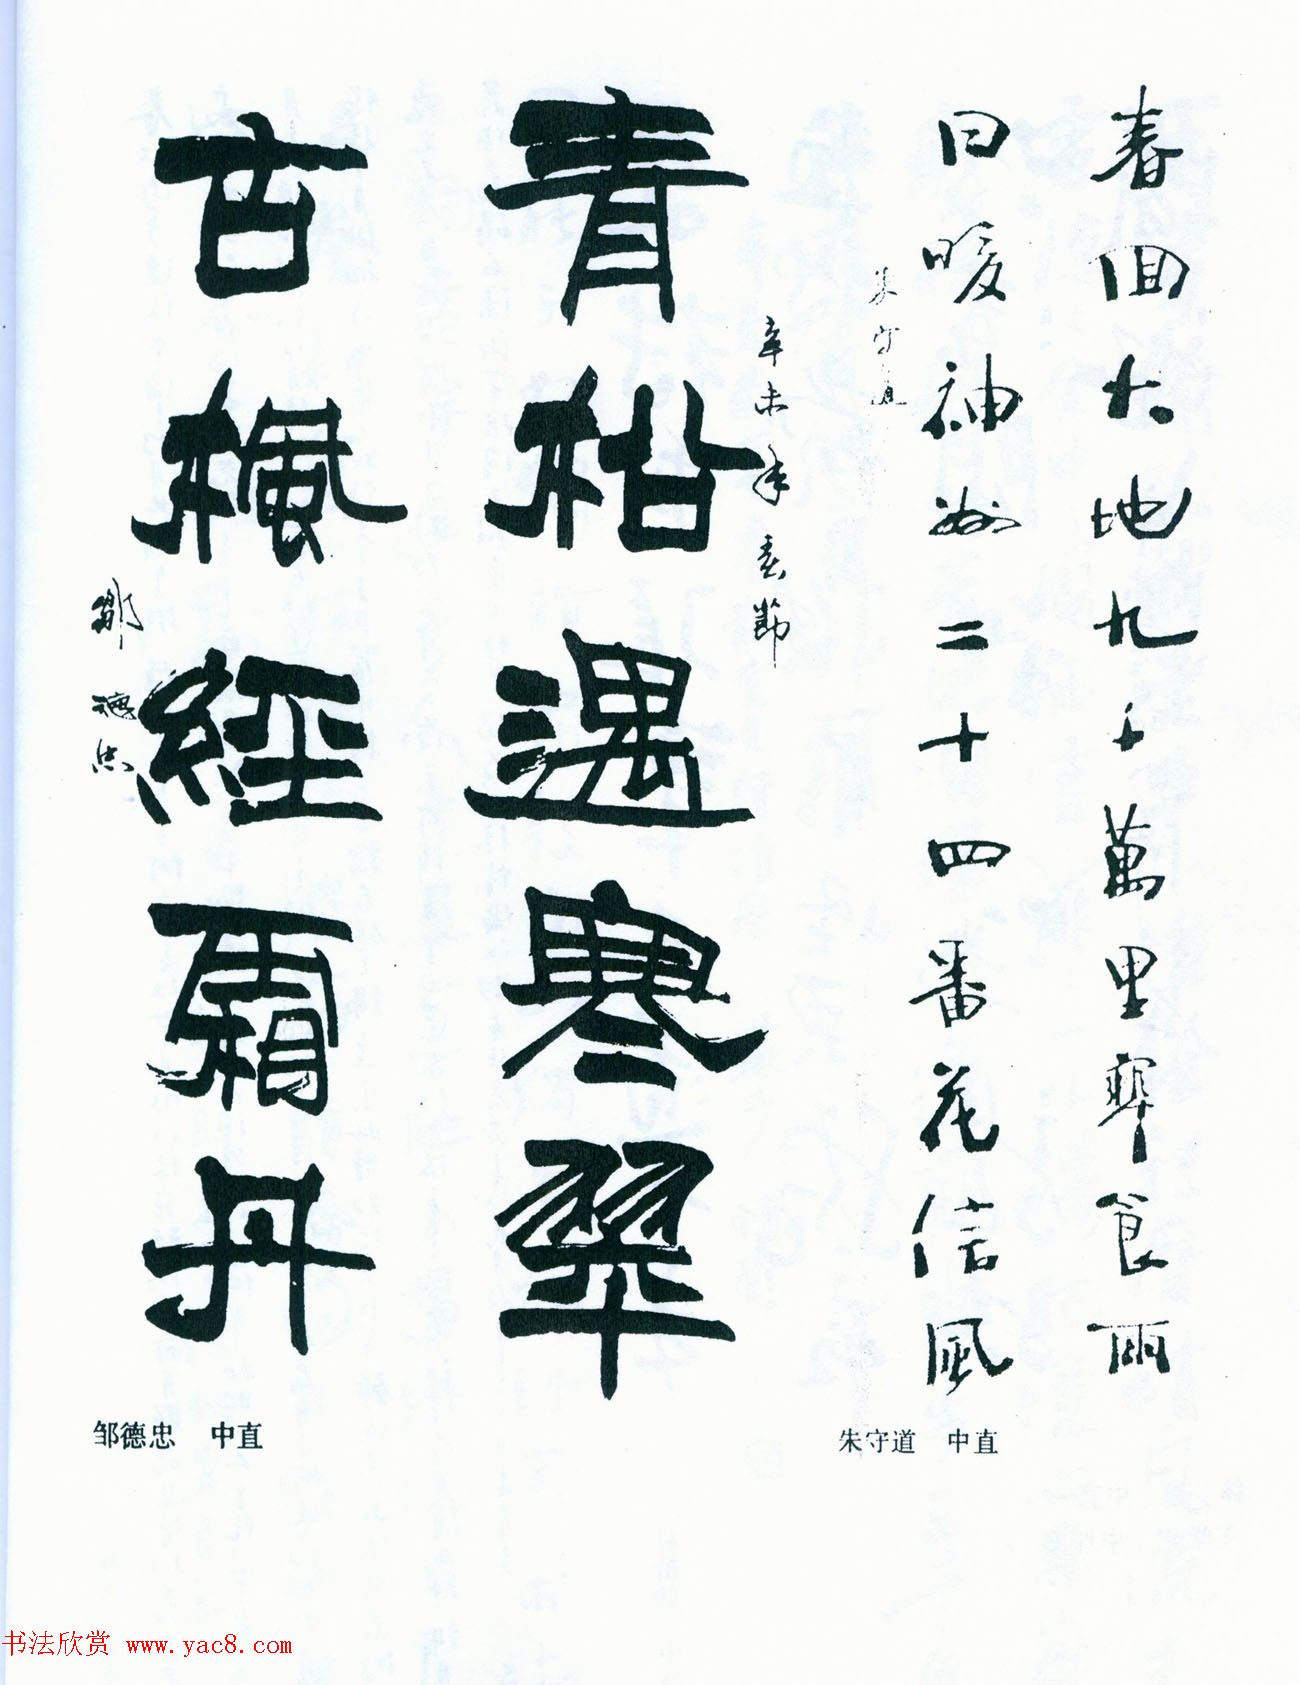 春回大地九千萬里寒食雨
日暖神州二十四番花信風
朱守道
辛未年春節
青松遇寒翠
古楓經霜丹
鄒德忠
朱守道 中直
邹德忠 中直
书法欣赏 www.yac8.com